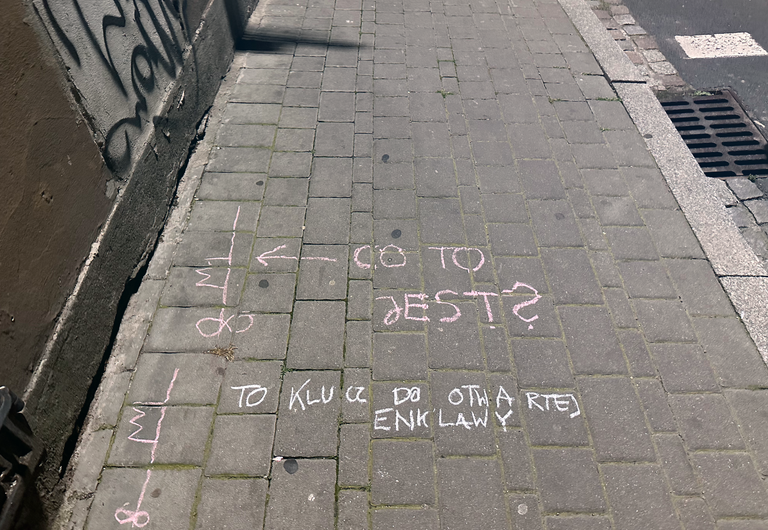 CO TO
JEST?
TO KLUCZ DO OTWARTEJ
ENKLAWY